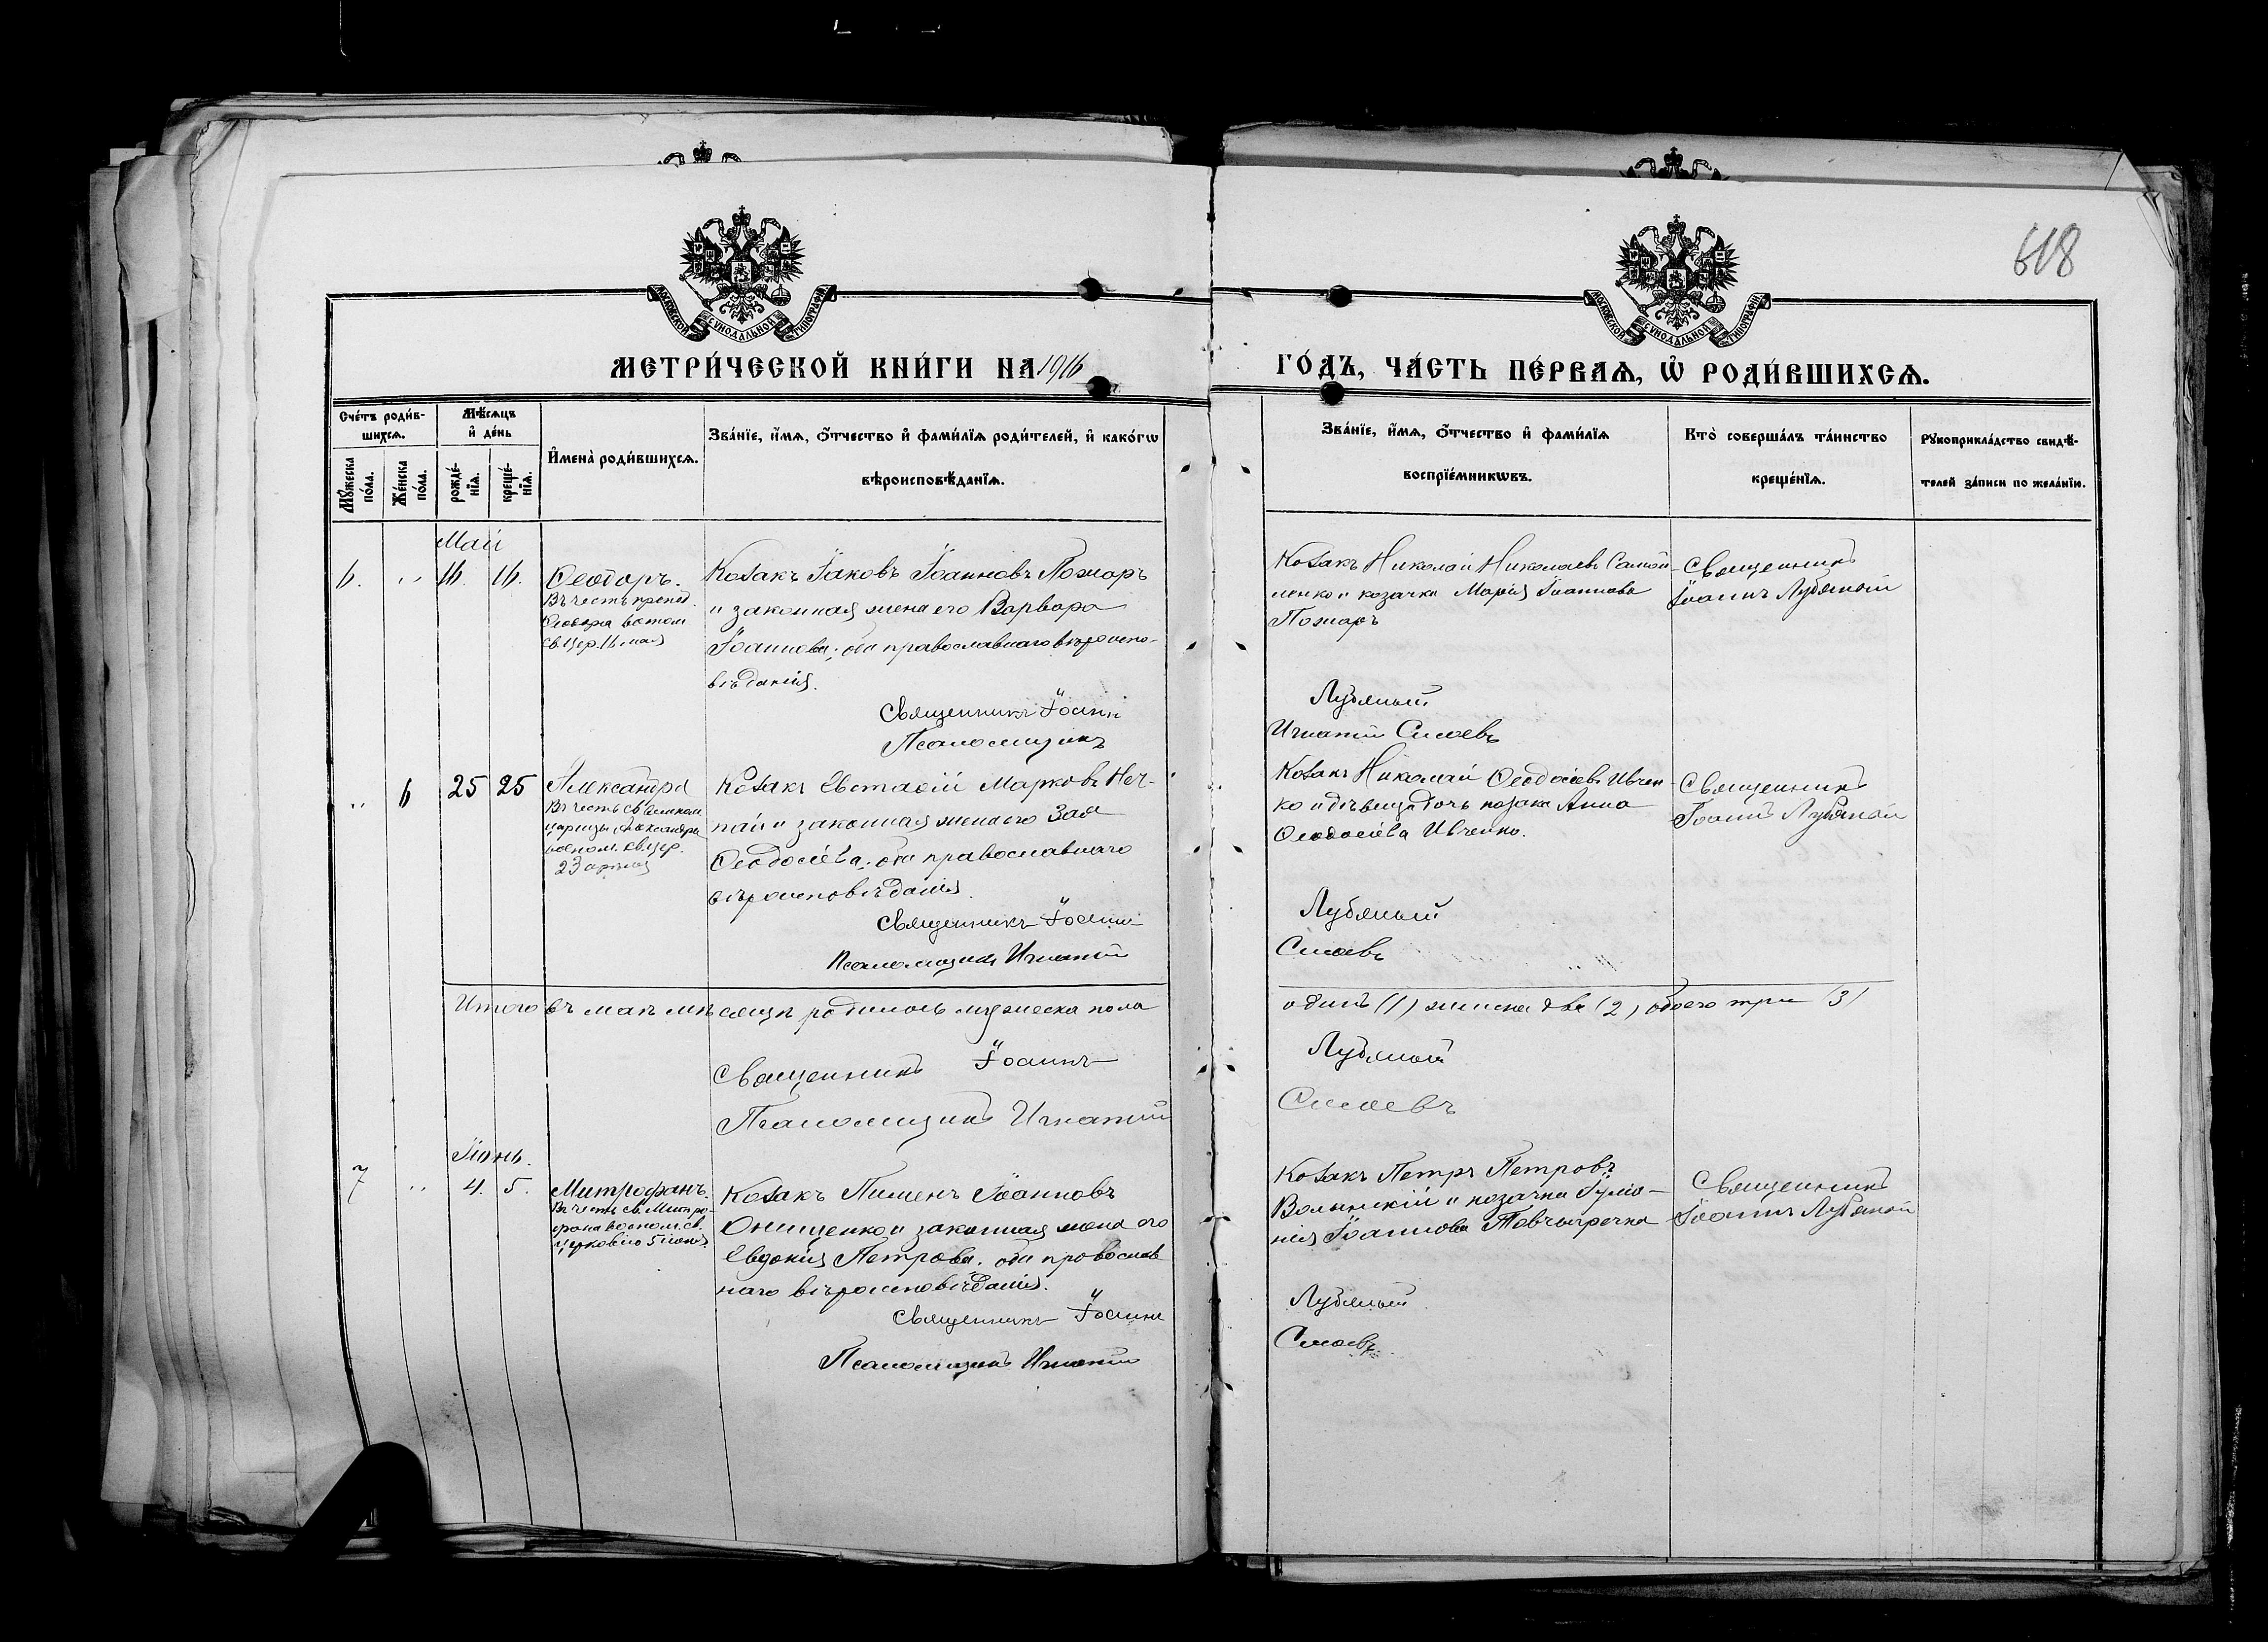 618
МОСКОВСКОЙ СУНОДАЛЬНОЙ ТИПОГРАФІИ
МОСКОВСКОЙ СУНОДАЛЬНОЙ ТИПОГРАФІИ
МЕТРИ́ЧЕСКОЙ КНИ́ГИ НА 1916
ГО́ДЪ, ЧА́СТЬ ПЕ́РВАѦ, Ѡ҆ РОДИ́ВШИХСѦ.
Сче́тъ роди́в-
шихсѧ.
Мѣ́сѧцъ
и҆ де́нь
И҆мена̀ роди́вшихсѧ.
Зва́нїе, и҆́мѧ, ѻ҆́тчество и҆ фами́лїѧ роди́телей, и҆ како́гѡ
вѣроисповѣ́данїѧ.
Мꙋ́жеска
по́ла.
Же́нска
по́ла.
рожде́-
нїѧ.
креще́-
нїѧ.
Зва́нїе, и҆́мѧ, ѻ҆́тчество и҆ фами́лїѧ
воспрїе́мникѡвъ.
Кто̀ соверша́лъ та́инство
креще́нїѧ.
Рꙋкоприкла́дство свидѣ́-
телей за́писи по жела́нїю.
Май
6. „ 16. 16. Ѳеодоръ.
Въ честь препод.
Ѳеодора воспом.
св. цер. 16 мая
Козакъ Іаковъ Іоанновъ Пожаръ
и законная жена его Варвара
Іоаннова; оба православнаго вѣроиспо-
вѣданія.
Священникъ Іоаннъ
Псаломщикъ
Козакъ Николай Николаевъ Самой-
ленко и козачка Марія Іоаннова
Пожаръ
Лубяный
Игнатій Сисоевъ
Священникъ
Іоаннъ Лубяный
„ 6 25 25 Александра
Въ честь св. великом.
царицы Александры
воспом. св. цер.
23 апрѣля
Козакъ Евстафій Марковъ Неч-
пай и законная жена его Зоя
Ѳеодосіева; оба православнаго
вѣроисповѣданія.
Священникъ Іоаннъ
Псаломщикъ Игнатій
Козакъ Николай Ѳеодосіевъ Ивчен-
ко и дѣвица дочь козака Анна
Ѳеодосіева Ивченко.
Лубяный
Сисоевъ
Священникъ
Іоаннъ Лубяный
Итого въ маѣ мѣсяцѣ родилось мужеска пола
одинъ (1) женска два (2) обоего три (3)
Священникъ Іоаннъ
Псаломщикъ Игнатій
Лубяный
Сисоевъ
Іюнь.
7 „ 4. 5. Митрофанъ.
Въ честь св. Митро-
фана воспом. св.
церковію 5 іюня.
Козакъ Пименъ Іоанновъ
Онищенко и законная жена его
Евдокія Петрова. оба православ
наго вѣроисповѣданія.
Священникъ Іоаннъ
Псаломщикъ Игнатій
Козакъ Петръ Петровъ
Волынскій и козачка Іуліа-
нія Іоаннова Товчигречка
Лубяный
Сисоевъ
Священникъ
Іоаннъ Лубяный